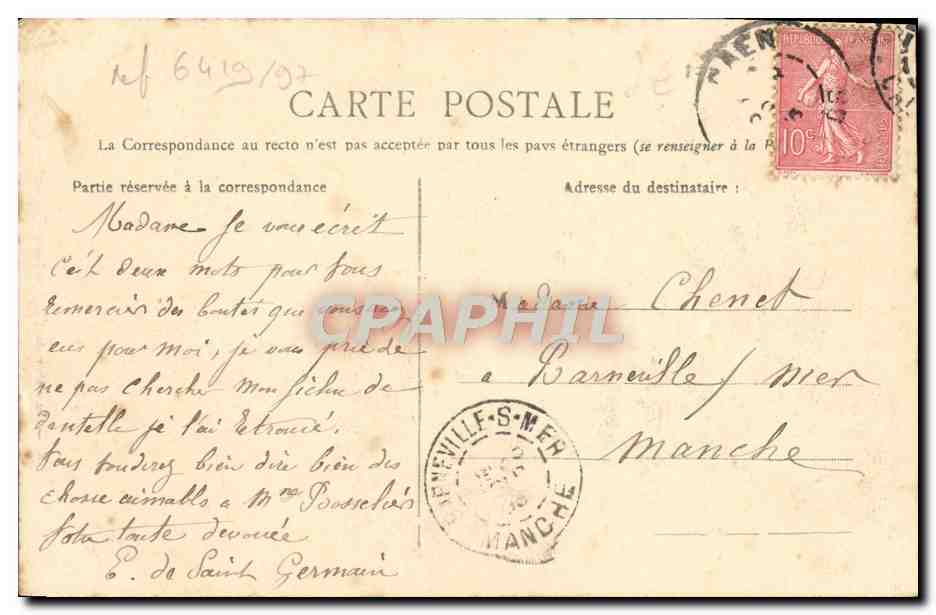 ref 6419/97
CARTE POSTALE
La Correspondance au recto n'est pas acceptée par tous les pays étrangers (se renseigner à la P
Partie réservée à la correspondance
Adresse du destinataire :
Madame Je vous écrit
c'éit deux mots pour vous
remercier des boutés que vous avez
eus pour moi, je vous prie de
ne pas cherche mon fichu de
dentelle je l'ai retrouvé.
Vous voudrez bien dire bien des
chose aimable a Mme
Votre toute devouée
E. de Saint Germain
Madame Chenet
a Barneville / mer
Manche
RÉPUBLIQUE FRANÇAISE
10c
BARNEVILLE-S-MER
MANCHE
CPAPHIL